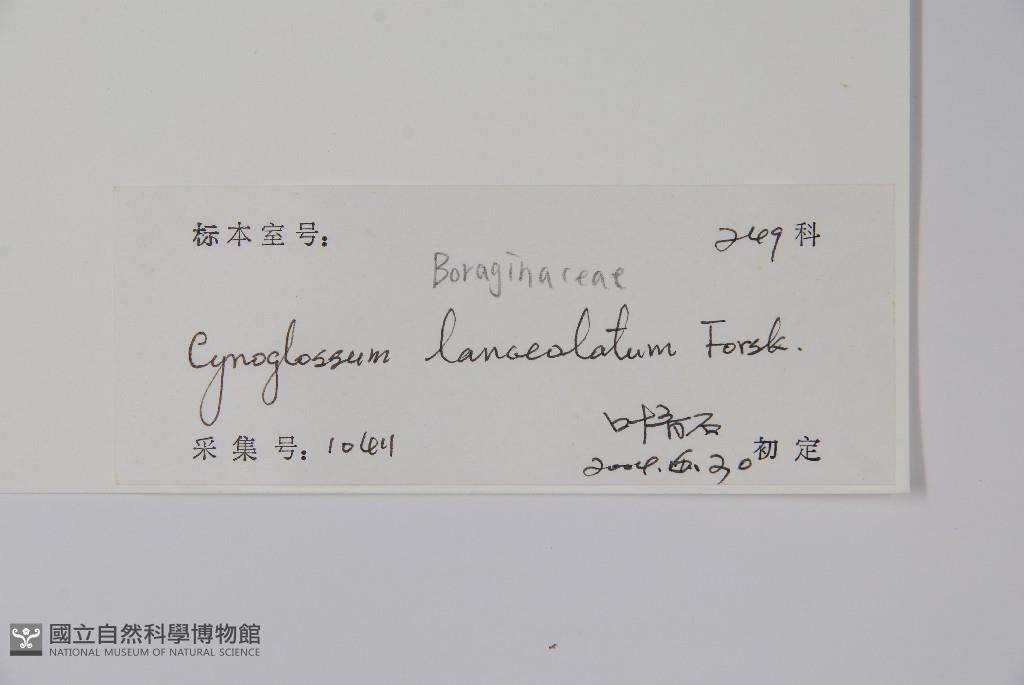 标本室号: 249科
Boraginaceae
Cynoglossum lanceolatum Forsk.
采集号: 10441 叶青石
2004.6.20 初定
國立自然科學博物館
NATIONAL MUSEUM OF NATURAL SCIENCE